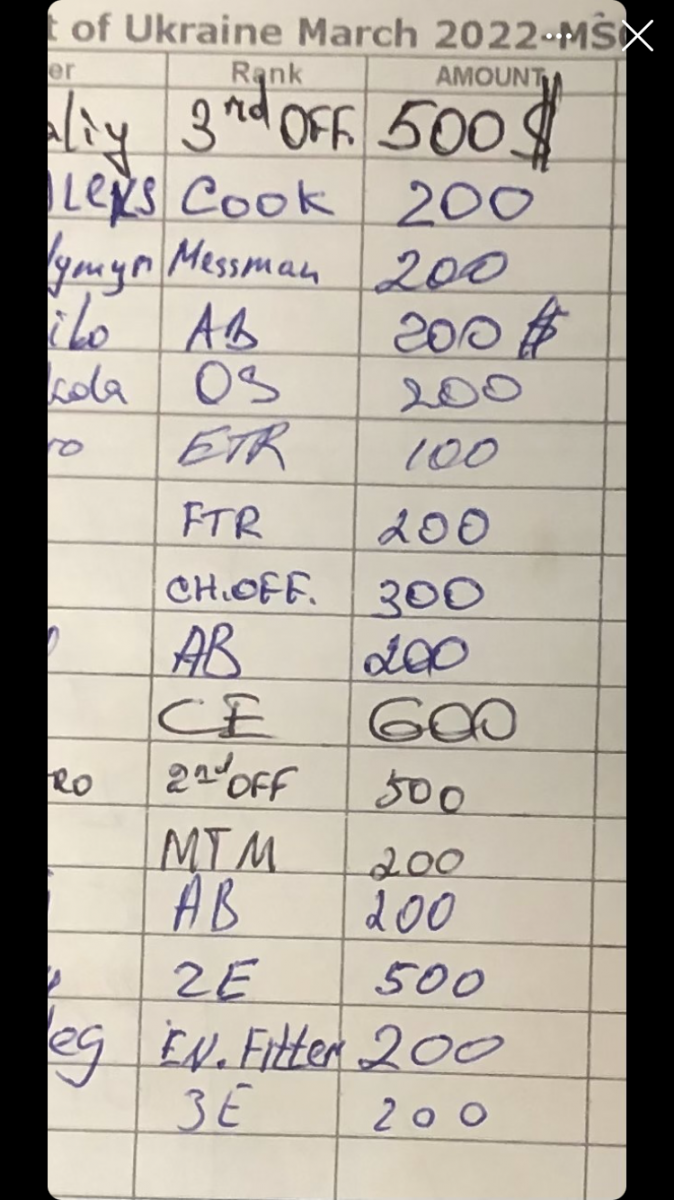 t of Ukraine March 2022-MS
er Rank AMOUNT
aliy 3rd OFF. 500$
LEKS Cook 200
ymyr Messman 200
ilo AB 200 $
kola OS 200
ro ETR 100
FTR 200
CH.OFF. 300
AB 200
CE 600
RO 2nd OFF 500
MTM 200
AB 200
2E 500
leg EN. Fitter 200
3E 200